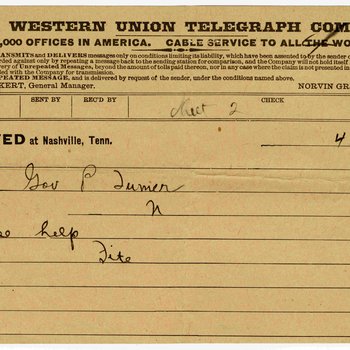 WESTERN UNION TELEGRAPH COM
,000 OFFICES IN AMERICA. CABLE SERVICE TO ALL THE WO
TRANSMITS and DELIVERS messages only on conditions limiting its liability, which have been assented to by the sender
rded against only by repeating a message back to the sending station for comparison, and the Company will not hold itself
very of Unrepeated Messages, beyond the amount of tolls paid thereon, nor in any case where the claim is not presented in
led with the Company for transmission.
REPEATED MESSAGE, and is delivered by request of the sender, under the conditions named above.
KERT, General Manager. NORVIN GR
SENT BY REC'D BY CHECK
2
VED at Nashville, Tenn. 4
Gov P Turner
N
help